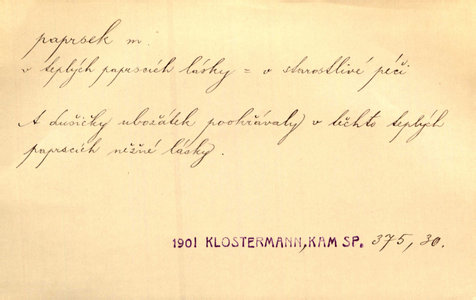 paprsek m.
v teplých paprscích lásky = v starostlivé péči
A dušičky ubožátek pookřávaly v těchto teplých
paprscích něžné lásky.
1901 KLOSTERMANN, KAM SP. 375, 30.